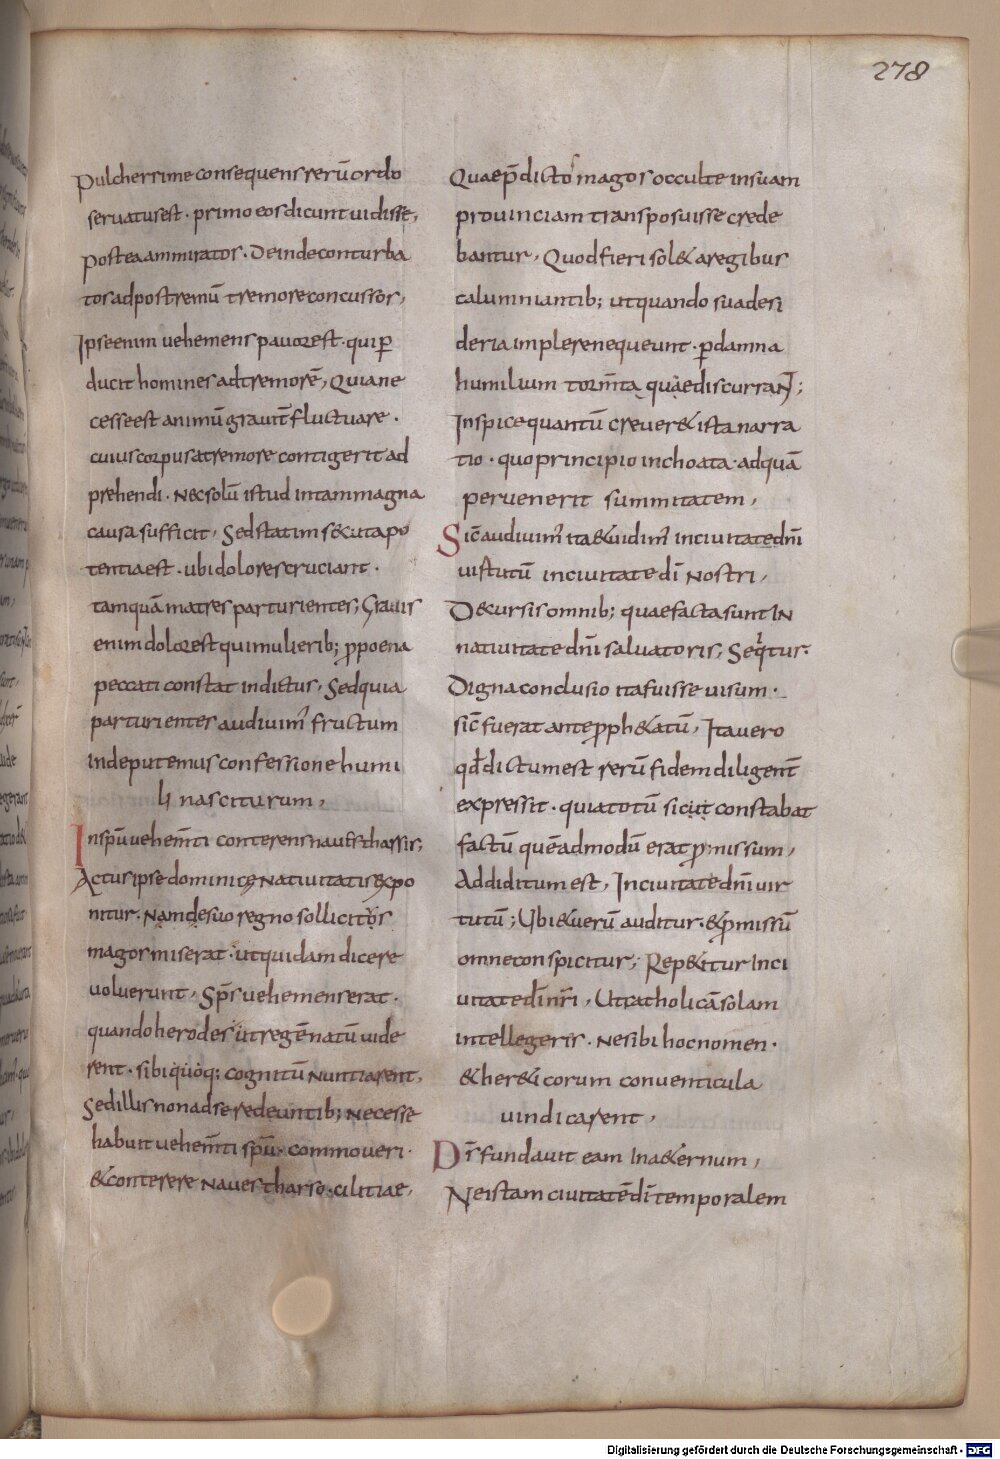 278
pulcherrime consequens rerū ordo
seruatus est · primo eos dicunt uidisse,
postea ammiratos · Deinde conturba
tos ad postremū tremore concussos,
Ipse enim uehemens pauor est · qui ꝑ
ducit homines ad tremorē, Quia ne
cesse est animū grauit̄ fluctuare ·
cuius corpus a tremore contigerit ad
prehendi · Nec solū istud in tam magna
causa sufficit, Sed statim s&uita po
tentia est · ubi dolores cruciant ·
tamquā matres parturientes; Grauis
enim dolor est qui mulierib; ꝓ poena
peccati constat indictus, Sed quia
parturientes audiuim' fructum
inde putemus confessione humi
li nasciturum,
In spū uehem̄ti conterens naues tharsis;
Actus ipse dominicę natiuitatis expo
nitur · Nam de suo regno sollicitus
magos miserat · ut quidam dicere
uoluerunt, Sps̄ uehemens erat ·
quando herodes ut regē natū uide
rent · sibi quoq; cognitū nuntiarent,
Sed illis non ad se redeuntib; necesse
habuit uehem̄ti spū commoueri ·
& conterere naues tharso · cilitiae,
Quae p̄dictos magos occulte in suam
prouinciam transposuisse crede
bantur, Quod fieri sol& a regibus
calumniantib; ut quando sua desi
deria implere nequeunt · ꝑ damna
humilium torm̄ta quaedis currant;
Inspice quantū creuer& ista narra
tio · quo principio inchoata · ad quā
peruenerit summitatem,
Sic̄ audiuim' ita & uidim' in ciuitate dn̄i
uirtutū in ciuitate dī nostri,
D&ursis omnib; quae facta sunt in
natiuitate dn̄i saluatoris, Seqitur ·
Digna conclusio ita fuisse uisum ·
sic̄ fuerat ante ꝓph&atū, Ita uero
qđ dictum est rerū fidem diligent̄
expressit · quia totū sicut constabat
factū quēadmodū erat ꝓmissum,
Additum est, In ciuitate dn̄i uir
tutū; Ubi & uerū auditur · & ꝓmissū
omne conspicitur; Rep&itur In ci
uitate dī nr̄i, Ut catholicā solam
intellegeris · ne sibi hoc nomen ·
& her&icorum conuenticula
uindicarent,
Ds̄ fundauit eam in a&ernum,
Ne istam ciuitatē dī temporalem
Digitalisierung gefördert durch die Deutsche Forschungsgemeinschaft - DFG